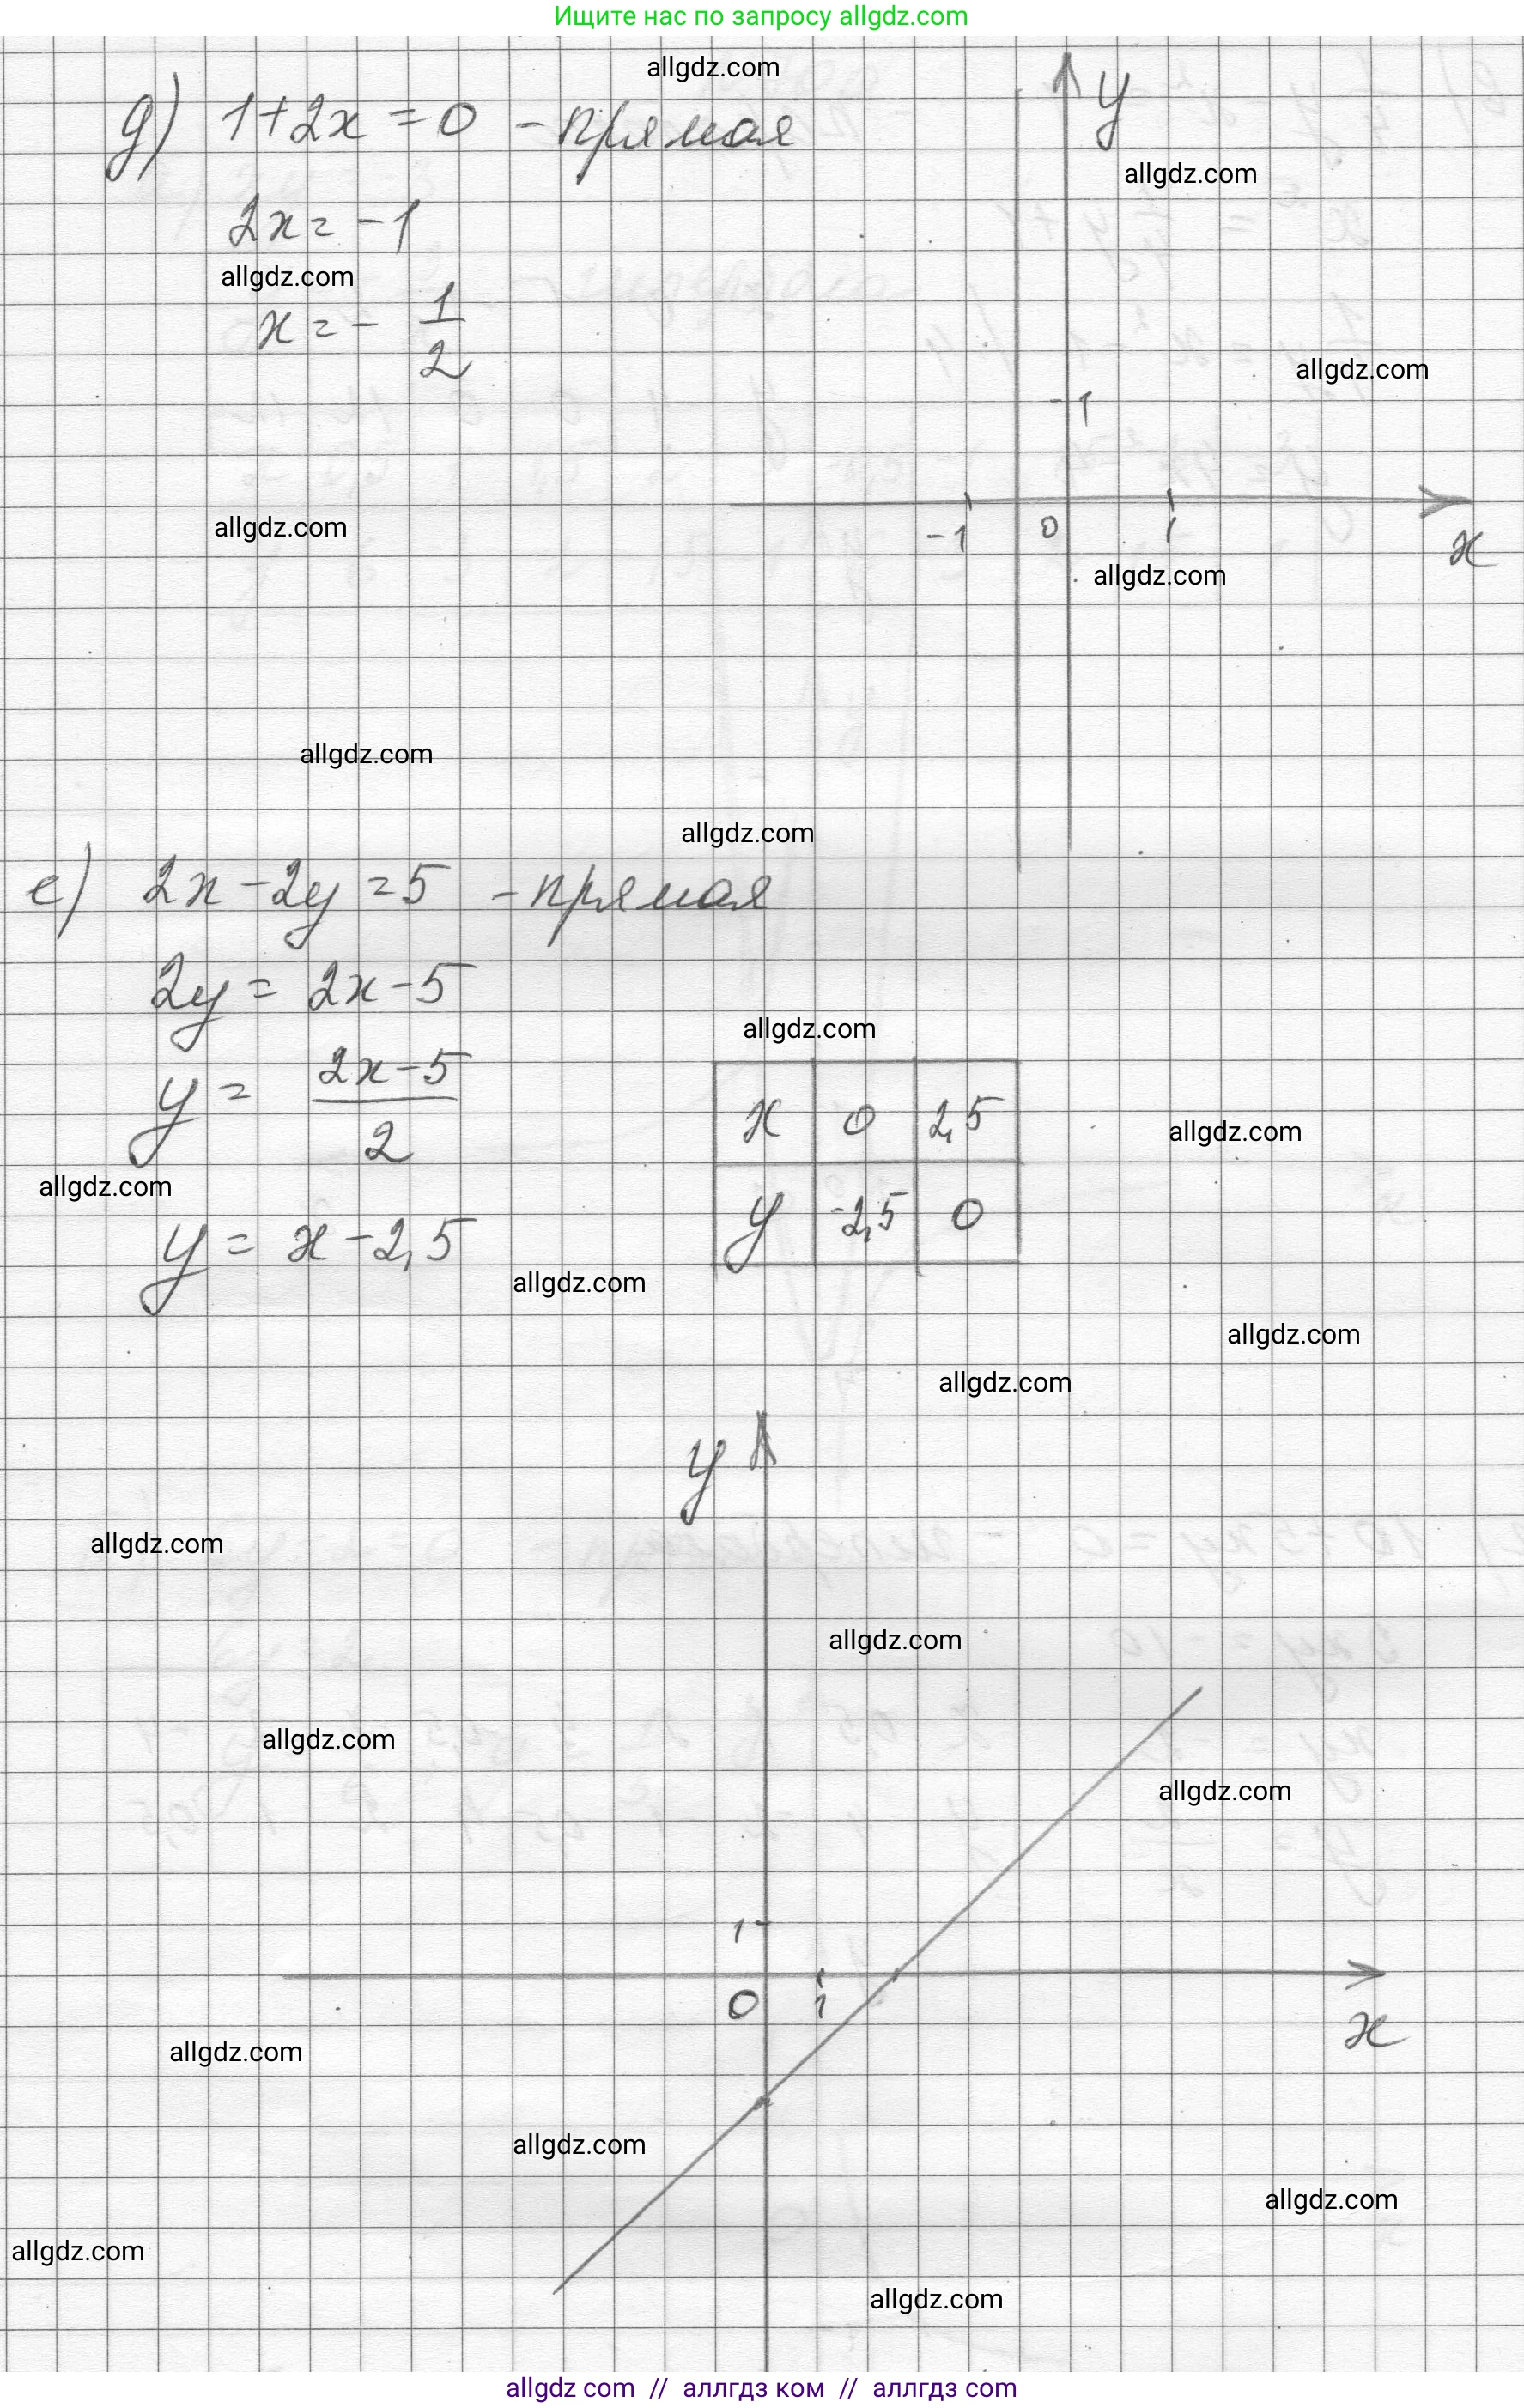 Ищите нас по запросу allgdz.com
allgdz.com
y
д) 1+2x=0 - прямая
allgdz.com
2x=-1
allgdz.com
x=-1/2
allgdz.com
1
allgdz.com
-1 0 1 x
allgdz.com
allgdz.com
allgdz.com
е) 2x-2y=5 - прямая
2y=2x-5
allgdz.com
y=(2x-5)/2
x 0 2,5
allgdz.com
allgdz.com
y -2,5 0
y=x-2,5
allgdz.com
allgdz.com
allgdz.com
y
allgdz.com
allgdz.com
allgdz.com
allgdz.com
1
0 1 x
allgdz.com
allgdz.com
allgdz.com
allgdz.com
allgdz.com
allgdz com // аллгдз ком // аллгдз com